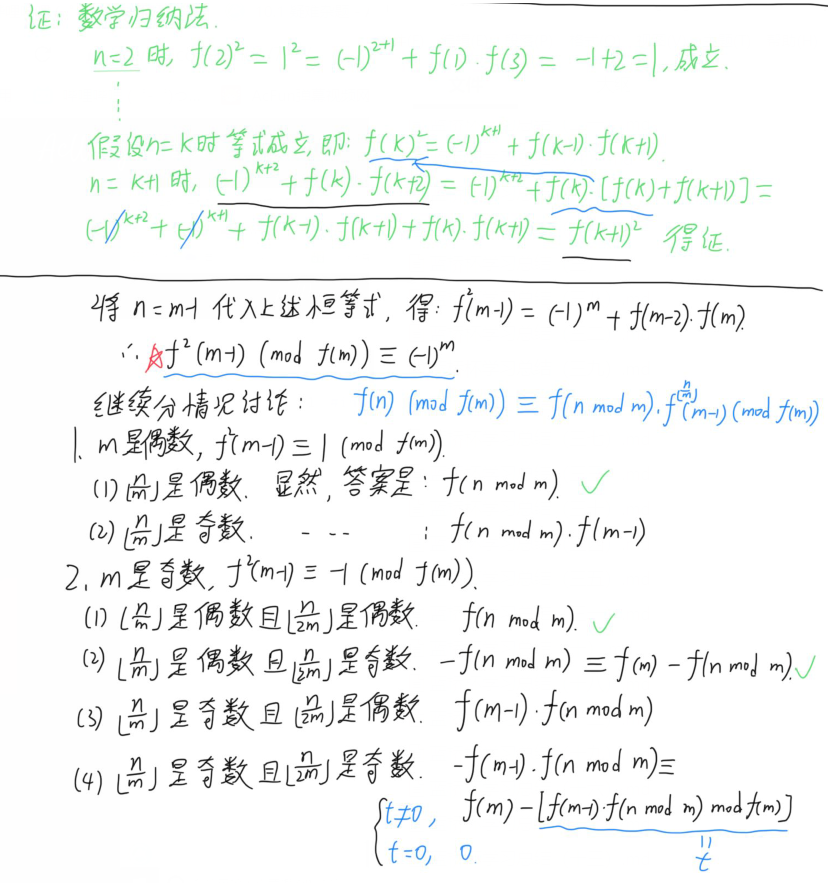 证: 数学归纳法.
n=2 时, f(2)² = 1² = (-1)²⁺¹ + f(1)·f(3) = -1+2=1, 成立.
⋮
假设n=k时等式成立, 即: f(k)²=(-1)ᵏ⁺¹ + f(k-1)·f(k+1).
n = k+1 时, (-1)ᵏ⁺² + f(k)·f(k+2) = (-1)ᵏ⁺² + f(k)·[f(k)+f(k+1)] =
(-1)ᵏ⁺² + (-1)ᵏ⁺¹ + f(k-1)·f(k+1) + f(k)·f(k+1) = f(k+1)² 得证.
将 n=m-1 代入上述恒等式, 得: f²(m-1) = (-1)ᵐ + f(m-2)·f(m).
∴ f²(m-1) (mod f(m)) ≡ (-1)ᵐ.
继续分情况讨论: f(n) (mod f(m)) ≡ f(n mod m)·f^{⌊n/m⌋}(m-1) (mod f(m))
1. m是偶数, f²(m-1) ≡ 1 (mod f(m)).
(1) ⌊n/m⌋是偶数. 显然, 答案是: f(n mod m). ✓
(2) ⌊n/m⌋是奇数. - - - : f(n mod m)·f(m-1)
2. m是奇数, f²(m-1) ≡ -1 (mod f(m)).
(1) ⌊n/m⌋是偶数且⌊n/2m⌋是偶数. f(n mod m). ✓
(2) ⌊n/m⌋是偶数且⌊n/2m⌋是奇数. -f(n mod m) ≡ f(m) - f(n mod m). ✓
(3) ⌊n/m⌋是奇数且⌊n/2m⌋是偶数. f(m-1)·f(n mod m)
(4) ⌊n/m⌋是奇数且⌊n/2m⌋是奇数. -f(m-1)·f(n mod m) ≡
{ t≠0, f(m) - [f(m-1)·f(n mod m) mod f(m)]
t=0, 0. = t